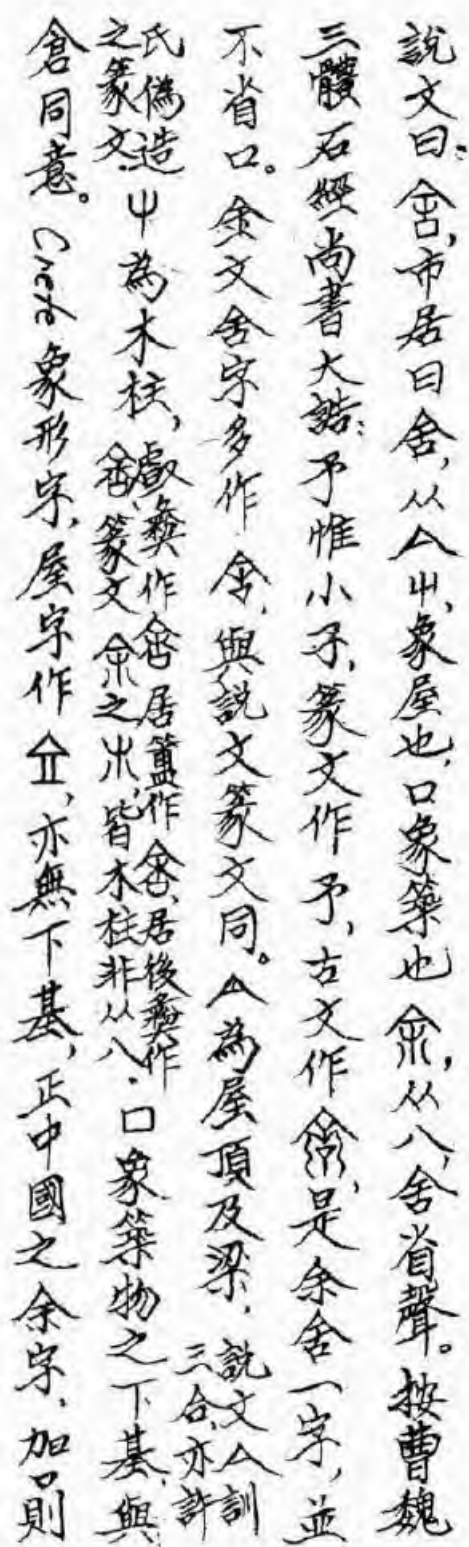 說文曰：舍，市居曰舍，从亼屮，象屋也，口象築也。余，从八，舍省聲。按曹魏
三體石經尚書大誥：予惟小子，篆文作予，古文作，是余舍一字，並
不省口。金文舍字多作舍，與說文篆文同。亼為屋頂及梁，說文亼訓三合，亦許
氏偽造之篆文。屮為木柱，𠭯彝作舍居簠作舍，居後彝作舍，篆文余之木，皆木柱非从八。口象築物之下基，與
倉同意。Crete象形字，屋字作，亦無下基，正中國之余字，加口則